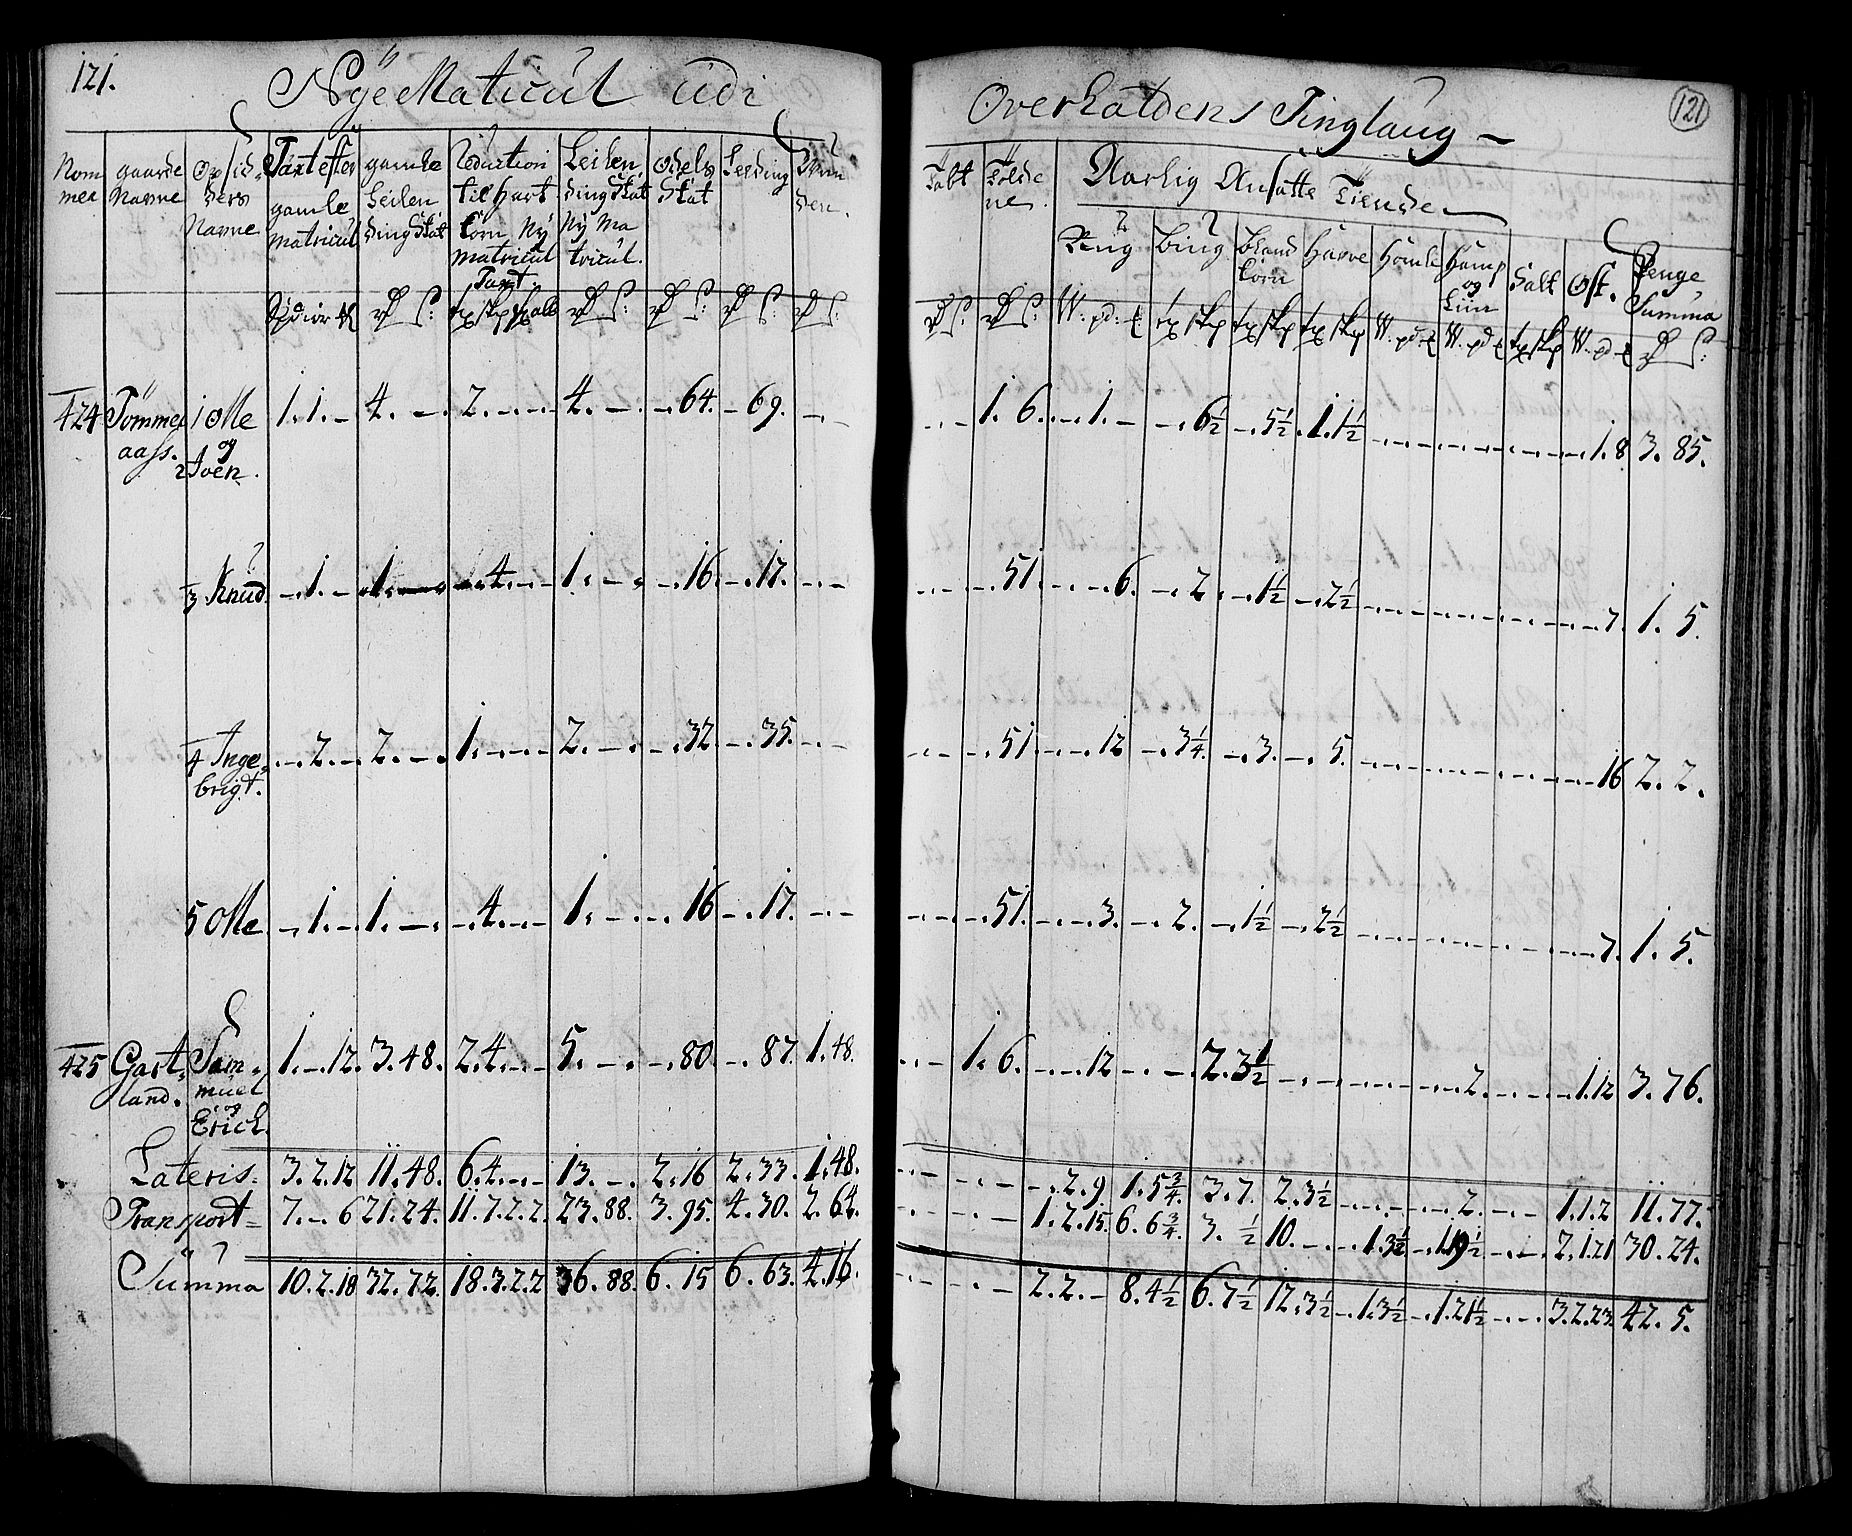 121.
Nÿe Maticul udi
Overhaldens Tinglaug
121
Nom mer | gaarde Navne | Opsid- ders Navne | Taxt efter gamle Matricul | gamle Leilen ding Skat | Reduction til Hart Corn Nÿ Matricul Taxt. | Leilen ding Skat Nÿ Ma tricul. | Odels Skat | Leeding
Aarlig Ansatte Tiende
Rug | Bÿug | Bland Corn | Havre | Homle | Hamp og Liin | Salt | Ost. | Penge Summa
424 | Tømmer aass. | 1 Olle og 2 Iver. | 1.1.- | 4. - | 2. - | 4. - | - 64. | - 69. | - | - | 1. 6. | - 1. - | - 6½ | - 5½ | 1. 1½ | - | - | - | - 1. 8 | 3. 85.
3 Knud. | - 1. - | 1. - | - 4. - | 1. - | - 16. | - 17. | - | - | - 51. | - 6. | - 2 | - 1½ | - 2½ | - | - | - | - 7. | 1. 5.
4 Inge- brigt. | - 2. - | 2. - | 1. - | 2. - | - 32. | - 35. | - | - | - 51 | - 12 | - 3¼ | - 3. | - 5. | - | - | - | - 16 | 2. 2.
5 Olle | - 1. - | 1. - | - 4. - | 1. - | - 16 | - 17. | - | - | - 51. | - 3. | - 2. | - 1½ | - 2½ | - | - | - | - 7. | 1. 5.
425 | Gart- land. | Sam- muel og Erich. | 1. - 12. | 3. 48. | 2. 4. - | 5. - | - 80. | - 87. | 1. 48. | - | 1. 6. | - 12 | - | 2. 3½ | - | - | - 2. | - | - 1. 12 | 3. 76.
Lateris. | 3. 2. 12 | 11. 48. | 6. 4. - | 13. - | 2. 16 | 2. 33. | 1. 48. | - | - | - 2. 9 | 1. 5¾. | 3. 7. | 2. 3½ | - | - 2. | - | 1. 1. 2 | 11. 77.
Transport | 7. - 6 | 21. 24. | 11. 7. 2. 2. | 23. 88. | 3. 95. | 4. 30. | 2. 64. | - | - | 1. 2. 15. | 6. 6¾. | 3. ½ | 10. - | - 1. 3½ | - 1. 19½ | - | 2. 1. 21 | 30. 24.
Summa | 10. 2. 18 | 32. 72. | 18. 3. 2. 2 | 36. 88. | 6. 15 | 6. 63. | 4. 16. | - | - | 2. 2. - | 8. 4½ | 6. 7½ | 12. 3½ | - 1. 3½ | - 1. 21½ | - | 3. 2. 23. | 42. 5.